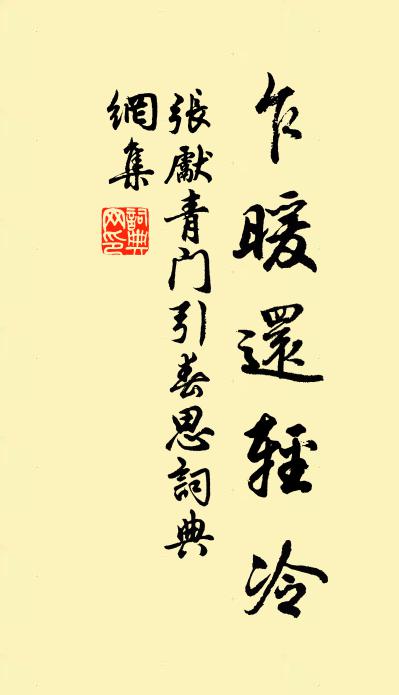 乍暖還輕冷
張獻青门引春思詞典
網集
詞典
网印